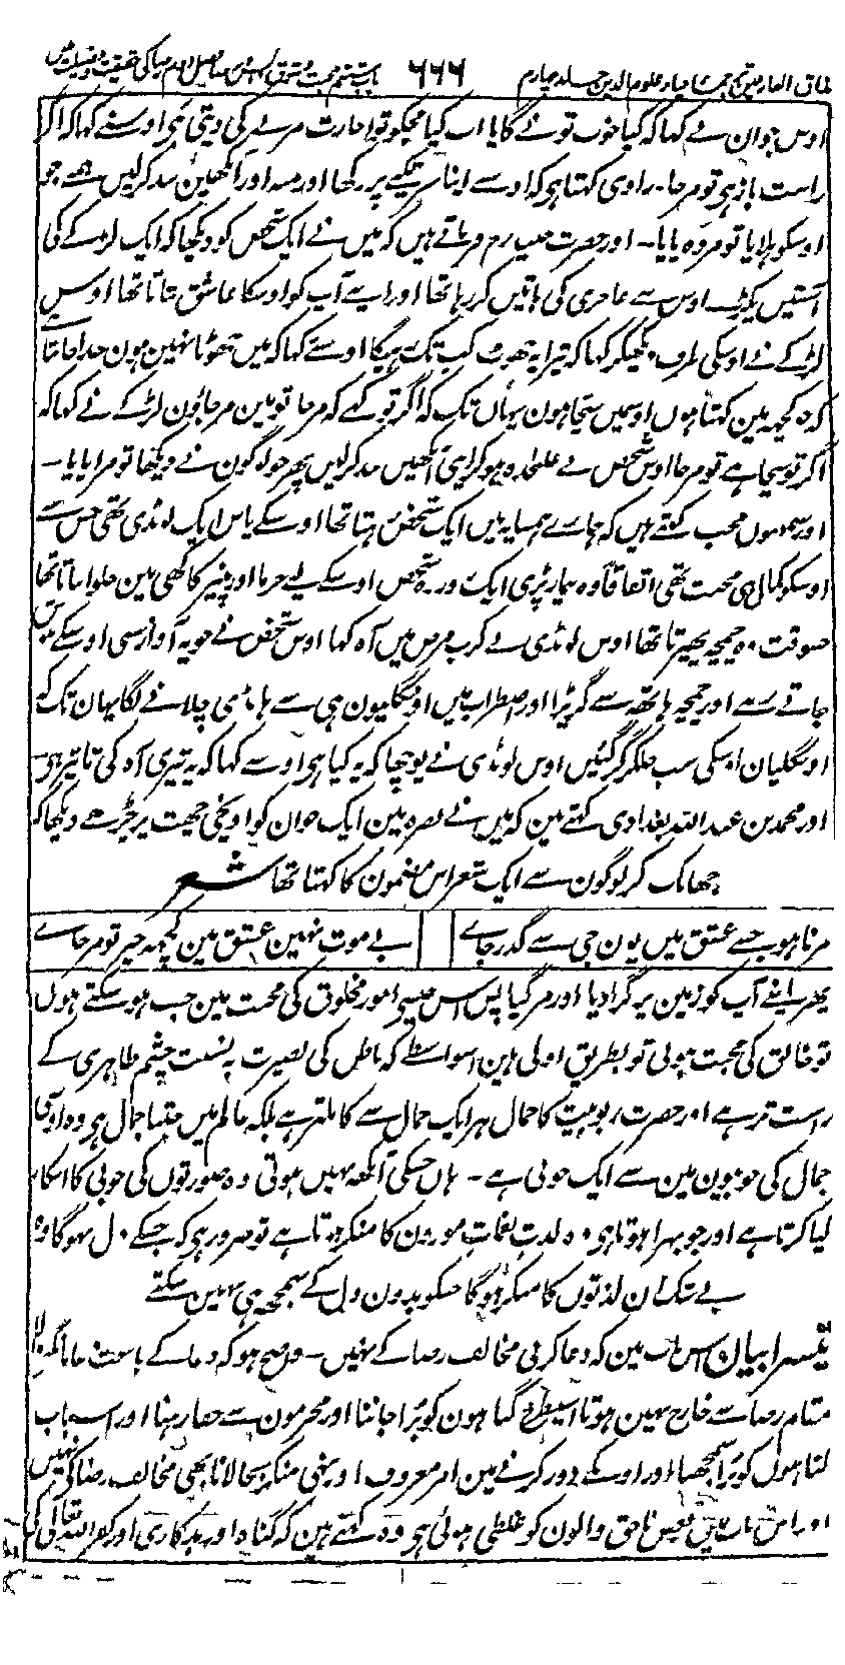 مذاق العارفین ترجمہ احیاء علوم الدین جلد چہارم ۶۶۶ باب ششم محبت و شوق
اوس جوان نے کہا کہ کیا خوب تو نے گایا اب کیا مجھکو تو اجازت مرنے کی دیتی ہی اوسنے کہا کہ اگر
راست باز ہی تو مرجا۔ راوی کہتا ہی کہ اوسنے اپنا سر تکیے پر رکھا اور منہ اور آنکھیں بند کر لیں ہمنے جو
اوسکو ہلایا تو مردہ پایا۔ اور حضرت جنید رح فرماتے ہیں کہ میں نے ایک شخص کو دیکھا کہ ایک لڑکے کی
آستیں پکڑے اوس سے عاجزی کی باتیں کر رہا تھا اور اپنے آپ کو اوسکا عاشق بتاتا تھا اوس
لڑکے نے اوسکی طرف دیکھکر کہا کہ تیرا یہ جھوٹ کب تک رہیگا اوسنے کہا کہ میں جھوٹا نہین ہون خدا جانتا ہے
کہ جو کچھ مین کہتا ہوں اوسمیں سچا ہون یہاں تک کہ اگر تو کہے کہ مرجا تو مین مرجاؤن لڑکے نے کہا کہ
اگر تو سچا ہے تو مرجا اوس شخص نے علحدہ ہوکر اپنی آنکھیں بند کر لیں پھر جو لوگون نے دیکھا تو مرا پایا۔
اور سمنون محب کہتے ہیں کہ ہمارے ہمسایہ میں ایک شخص رہتا تھا اوسکے پاس ایک لونڈی تھی جس سے
اوسکو کمال ہی محبت تھی اتفاقاً وہ بیمار پڑی ایک روز وہ شخص اوسکے لیے خرما اور پنیر کا گھی مین حلوا بناتا تھا
جسوقت وہ چمچہ پھیرتا تھا اوس لونڈی نے کرب مرض میں آہ کہا اوس شخص نے جو یہ آواز سنی اوسکے ہوش
جاتے رہے اور چمچہ ہاتھ سے گر پڑا اور اضطراب میں اونگلیون ہی سے ہانڈی چلانے لگا یہان تک کہ
اونگلیان اوسکی سب جلکر گر گئیں اوس لونڈی نے پوچھا کہ یہ کیا ہی اوسنے کہا کہ یہ تیری آہ کی تاثیر ہی۔
اور محمد بن عبد اللہ بغدادی کہتے مین کہ میں نے بصرہ مین ایک جوان کو اونچی چھت پر چڑھے دیکھا کہ
جھانک کر لوگون سے ایک شعر اس مضمون کا کہتا تھا شعر
مرنا ہو جسے عشق میں یون جی سے گذر جائے بے موت نہین عشق مین کچھ خیر تو مرجائے
پھر اپنے آپ کو زمین پر گرا دیا اور مر گیا پس اس جیسے امور مخلوق کی محبت مین جب ہو سکتے ہوں
تو خالق کی محبت مین تو بطریق اولی ہین اسواسطے کہ باطن کی بصیرت بہ نسبت چشم ظاہری کے
راست تر ہے اور حضرت ربوبیت کا جمال ہر ایک جمال سے کاملتر ہے بلکہ عالم میں جتنا جمال ہی وہ اوسی
جمال کی خوبیون مین سے ایک خوبی ہے۔ ہاں جسکی آنکھ نہیں ہوتی وہ صورتوں کی خوبی کا انکار
کیا کرتا ہے اور جو بہرا ہوتا ہی وہ لذت نغمات موزون کا منکر ہوتا ہے تو ضرور ہی کہ جسکے دل نہوگا وہ
بے شک ان لذتوں کا منکر ہوگا جسکو بدون دل کے سمجھ ہی نہین سکتے
تیسرا بیان اس باب مین کہ دعا کرنی مخالف رضا کے نہیں۔ واضح ہو کہ دعا کے باعث دعا مانگنے والا
مقام رضا سے خارج نہین ہوتا اسیطرح گناہون کو برا جاننا اور مجرمون سے خفا رہنا اور اسباب
گناہوں کو برا سمجھنا اور اوسکے دور کرنے مین امر معروف اور نہی منکر بجالانا بھی مخالف رضا کے نہیں
اور اس باب میں بعض ناحق والون کو غلطی ہوئی ہی وہ کہتے ہین کہ گناہ اور بدکاری اور کفر اللہ تعالی کی